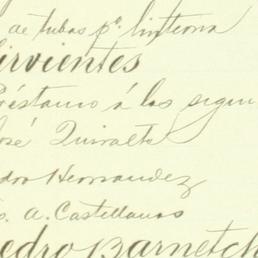 de tubos pª linterna
irvientes
éstamo á los siguien
José Quiralte
dro Hernandez
s. A. Castellanos
edro Barnetch